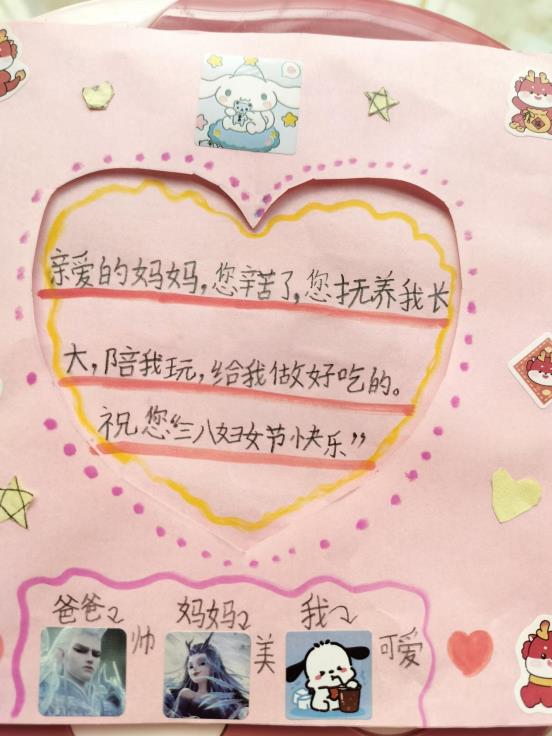 亲爱的妈妈,您辛苦了,您抚养我长
大,陪我玩,给我做好吃的。
祝您“三八妇女节快乐”
爸爸 妈妈 我
帅 美 可爱